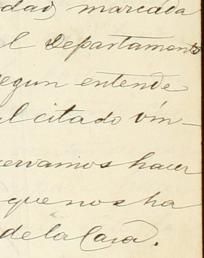 dad) marcada
el Departamento
segun entende
al citado vin-
servamos hacer
que nos ha
de la Casa.